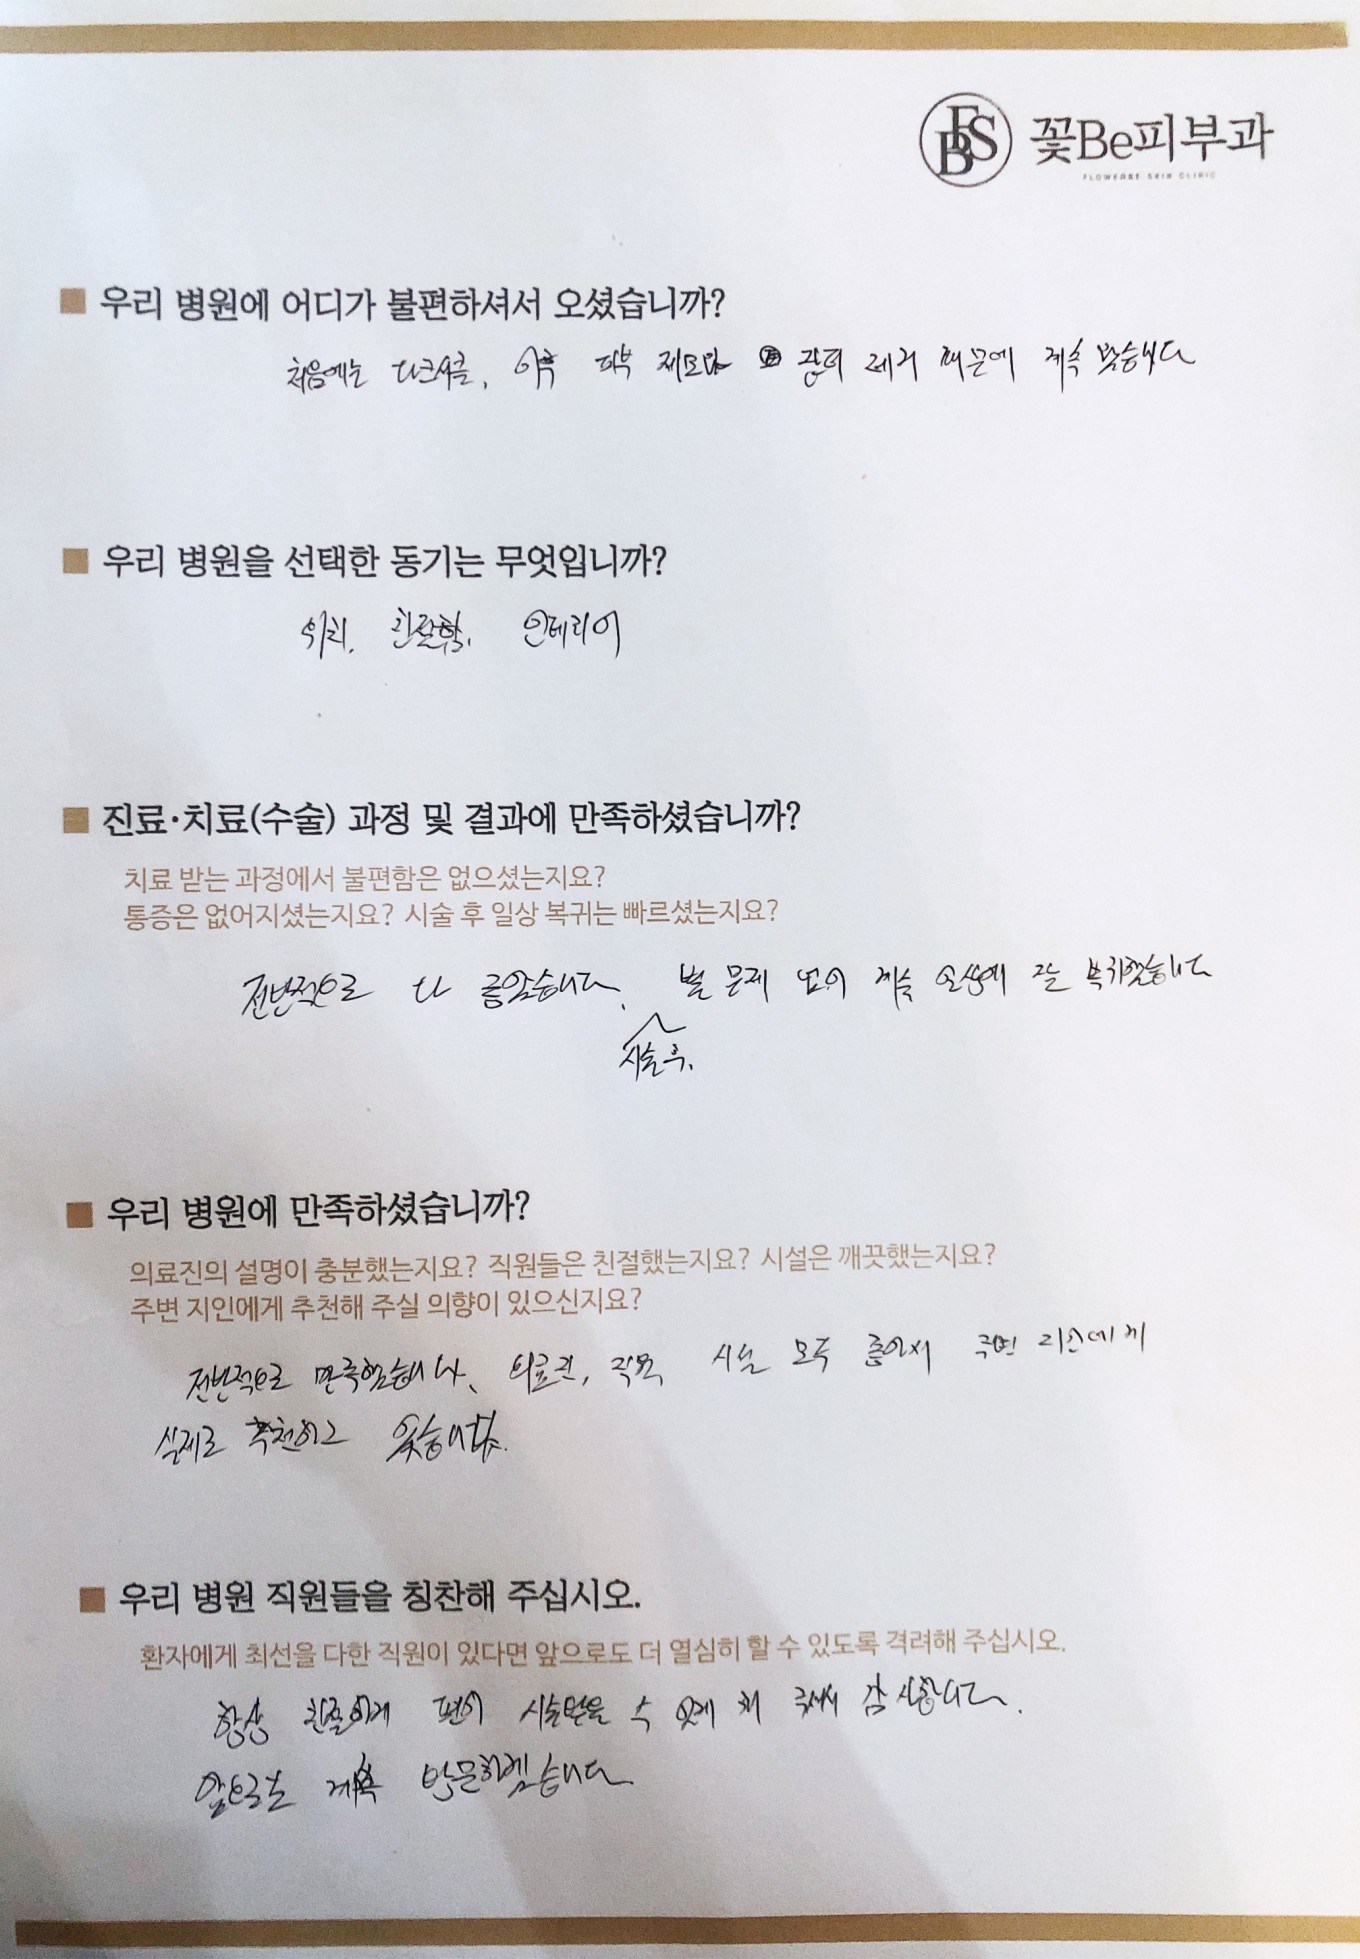 FBS 꽃Be피부과
FLOWERBE SKIN CLINIC
우리 병원에 어디가 불편하셔서 오셨습니까?
처음에는 다크서클, 이후 피부 제모및 관리 레거 때문에 계속 왔습니다
우리 병원을 선택한 동기는 무엇입니까?
위치, 친절함, 인테리어
진료·치료(수술) 과정 및 결과에 만족하셨습니까?
치료 받는 과정에서 불편함은 없으셨는지요?
통증은 없어지셨는지요? 시술 후 일상 복귀는 빠르셨는지요?
전반적으로 다 좋았습니다. 별 문제 없이 계속 일상에 잘 복귀했습니다
시술 후,
우리 병원에 만족하셨습니까?
의료진의 설명이 충분했는지요? 직원들은 친절했는지요? 시설은 깨끗했는지요?
주변 지인에게 추천해 주실 의향이 있으신지요?
전반적으로 만족했습니다. 의료진, 직원, 시설 모두 좋아서 주변 지인에게
실제로 추천하고 있습니다.
우리 병원 직원들을 칭찬해 주십시오.
환자에게 최선을 다한 직원이 있다면 앞으로도 더 열심히 할 수 있도록 격려해 주십시오.
항상 친절하게 편히 시술받을 수 있게 해 주셔서 감사합니다.
앞으로도 계속 방문하겠습니다